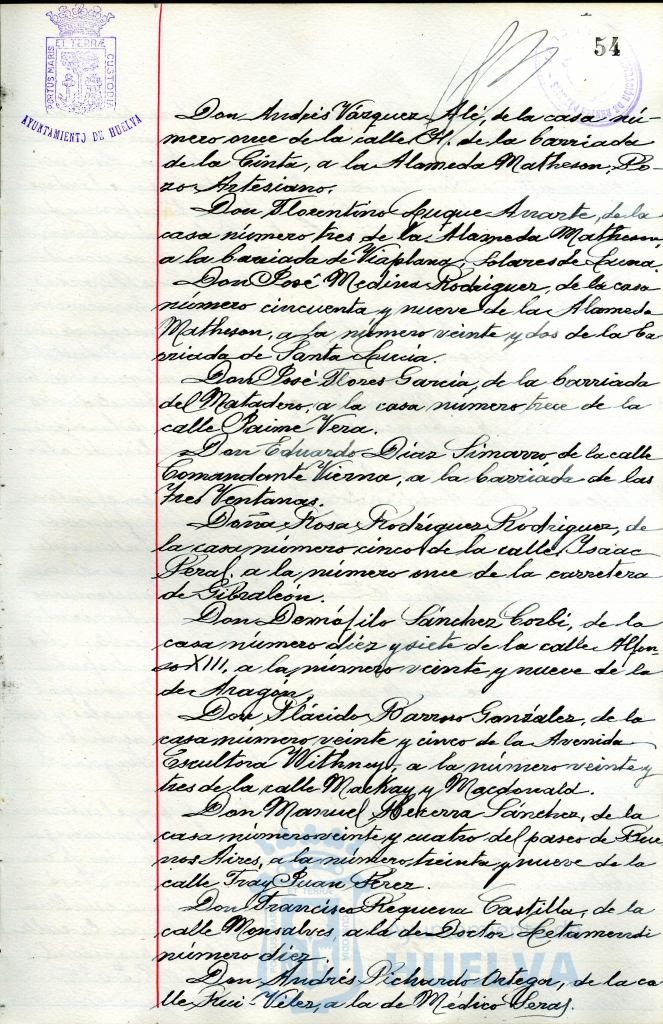 54
PORTUS MARIS
ET TERRÆ
CUSTODIA
AYUNTAMIENTO DE HUELVA
Don Andrés Vázquez Alé, de la casa nú-
mero once de la calle H. de la barriada
de la Cinta, a la Alameda Matheson, Po-
zo Artesiano.
Don Florentino Luque Arrarte, de la
casa número tres de la Alameda Matheson
a la barriada de Viaplana, Solares de Luna.
Don José Medina Rodriguez, de la casa
número cincuenta y nueve de la Alameda
Matheson, a la número veinte y dos de la Ba
rriada de Santa Lucia.
Don José Flores García, de la barriada
del Matadero, a la casa número trece de la
calle Jaime Vera.
Don Eduardo Díaz Simarro de la calle
Comandante Vierna, a la barriada de las
Tres Ventanas.
Doña Rosa Rodríguez Rodriguez, de
la casa número cinco de la calle Isaac
Peral, a la número once de la carretera
de Gibraleón.
Don Demófilo Sánchez Corbi, de la
casa número diez y siete de la calle Alfon-
so XIII, a la número veinte y nueve de la
de Aragón.
Don Plácido Barroso González, de la
casa número veinte y cinco de la Avenida
Escultora Withney, a la número veinte y
tres de la calle Mackay y Macdonald.
Don Manuel Becerra Sánchez, de la
casa número veinte y cuatro del paseo de Bue
nos Aires, a la número treinta y nueve de la
calle Fray Juan Pérez.
Don Francisco Requena Castilla, de la
calle Monsalves a la de Doctor Letamendi
número diez.
Don Andrés Pichardo Ortega, de la ca
lle Rui-Vélez, a la de Médico Seras.
HUELVA